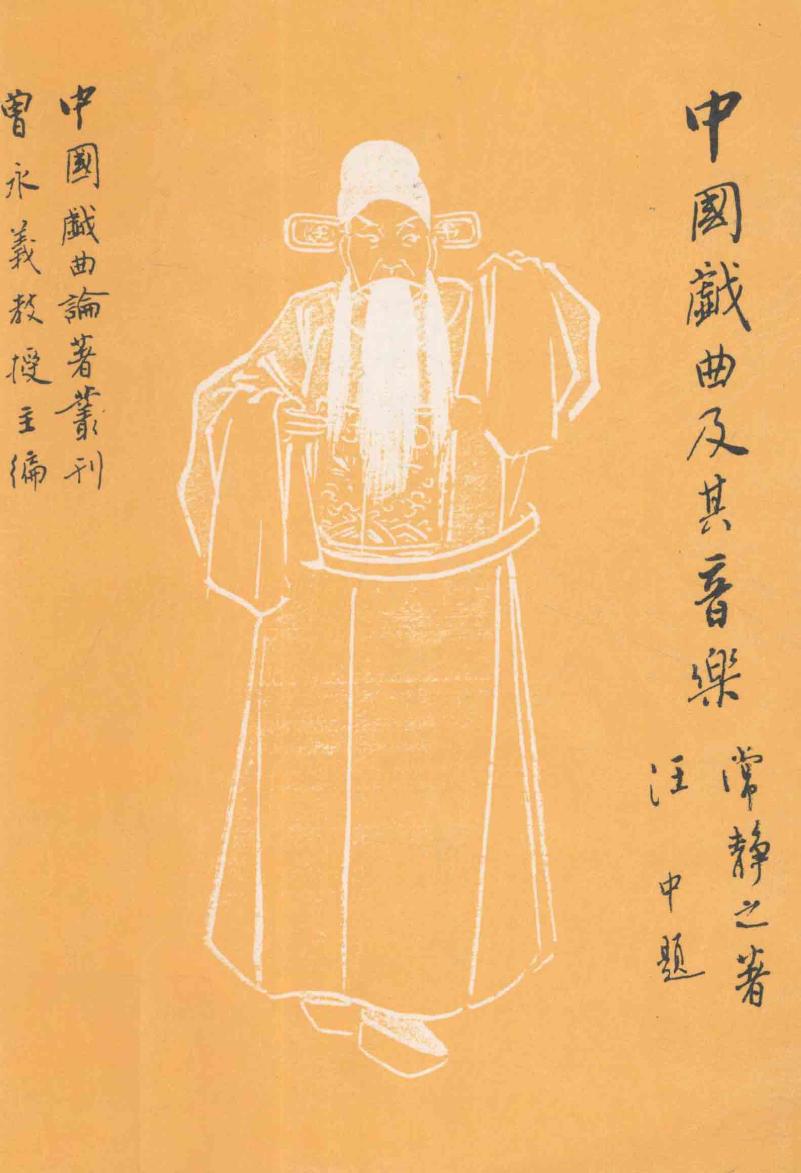 中國戲曲及其音樂
常靜之著
汪中題
中國戲曲論著叢刊
曾永義教授主编